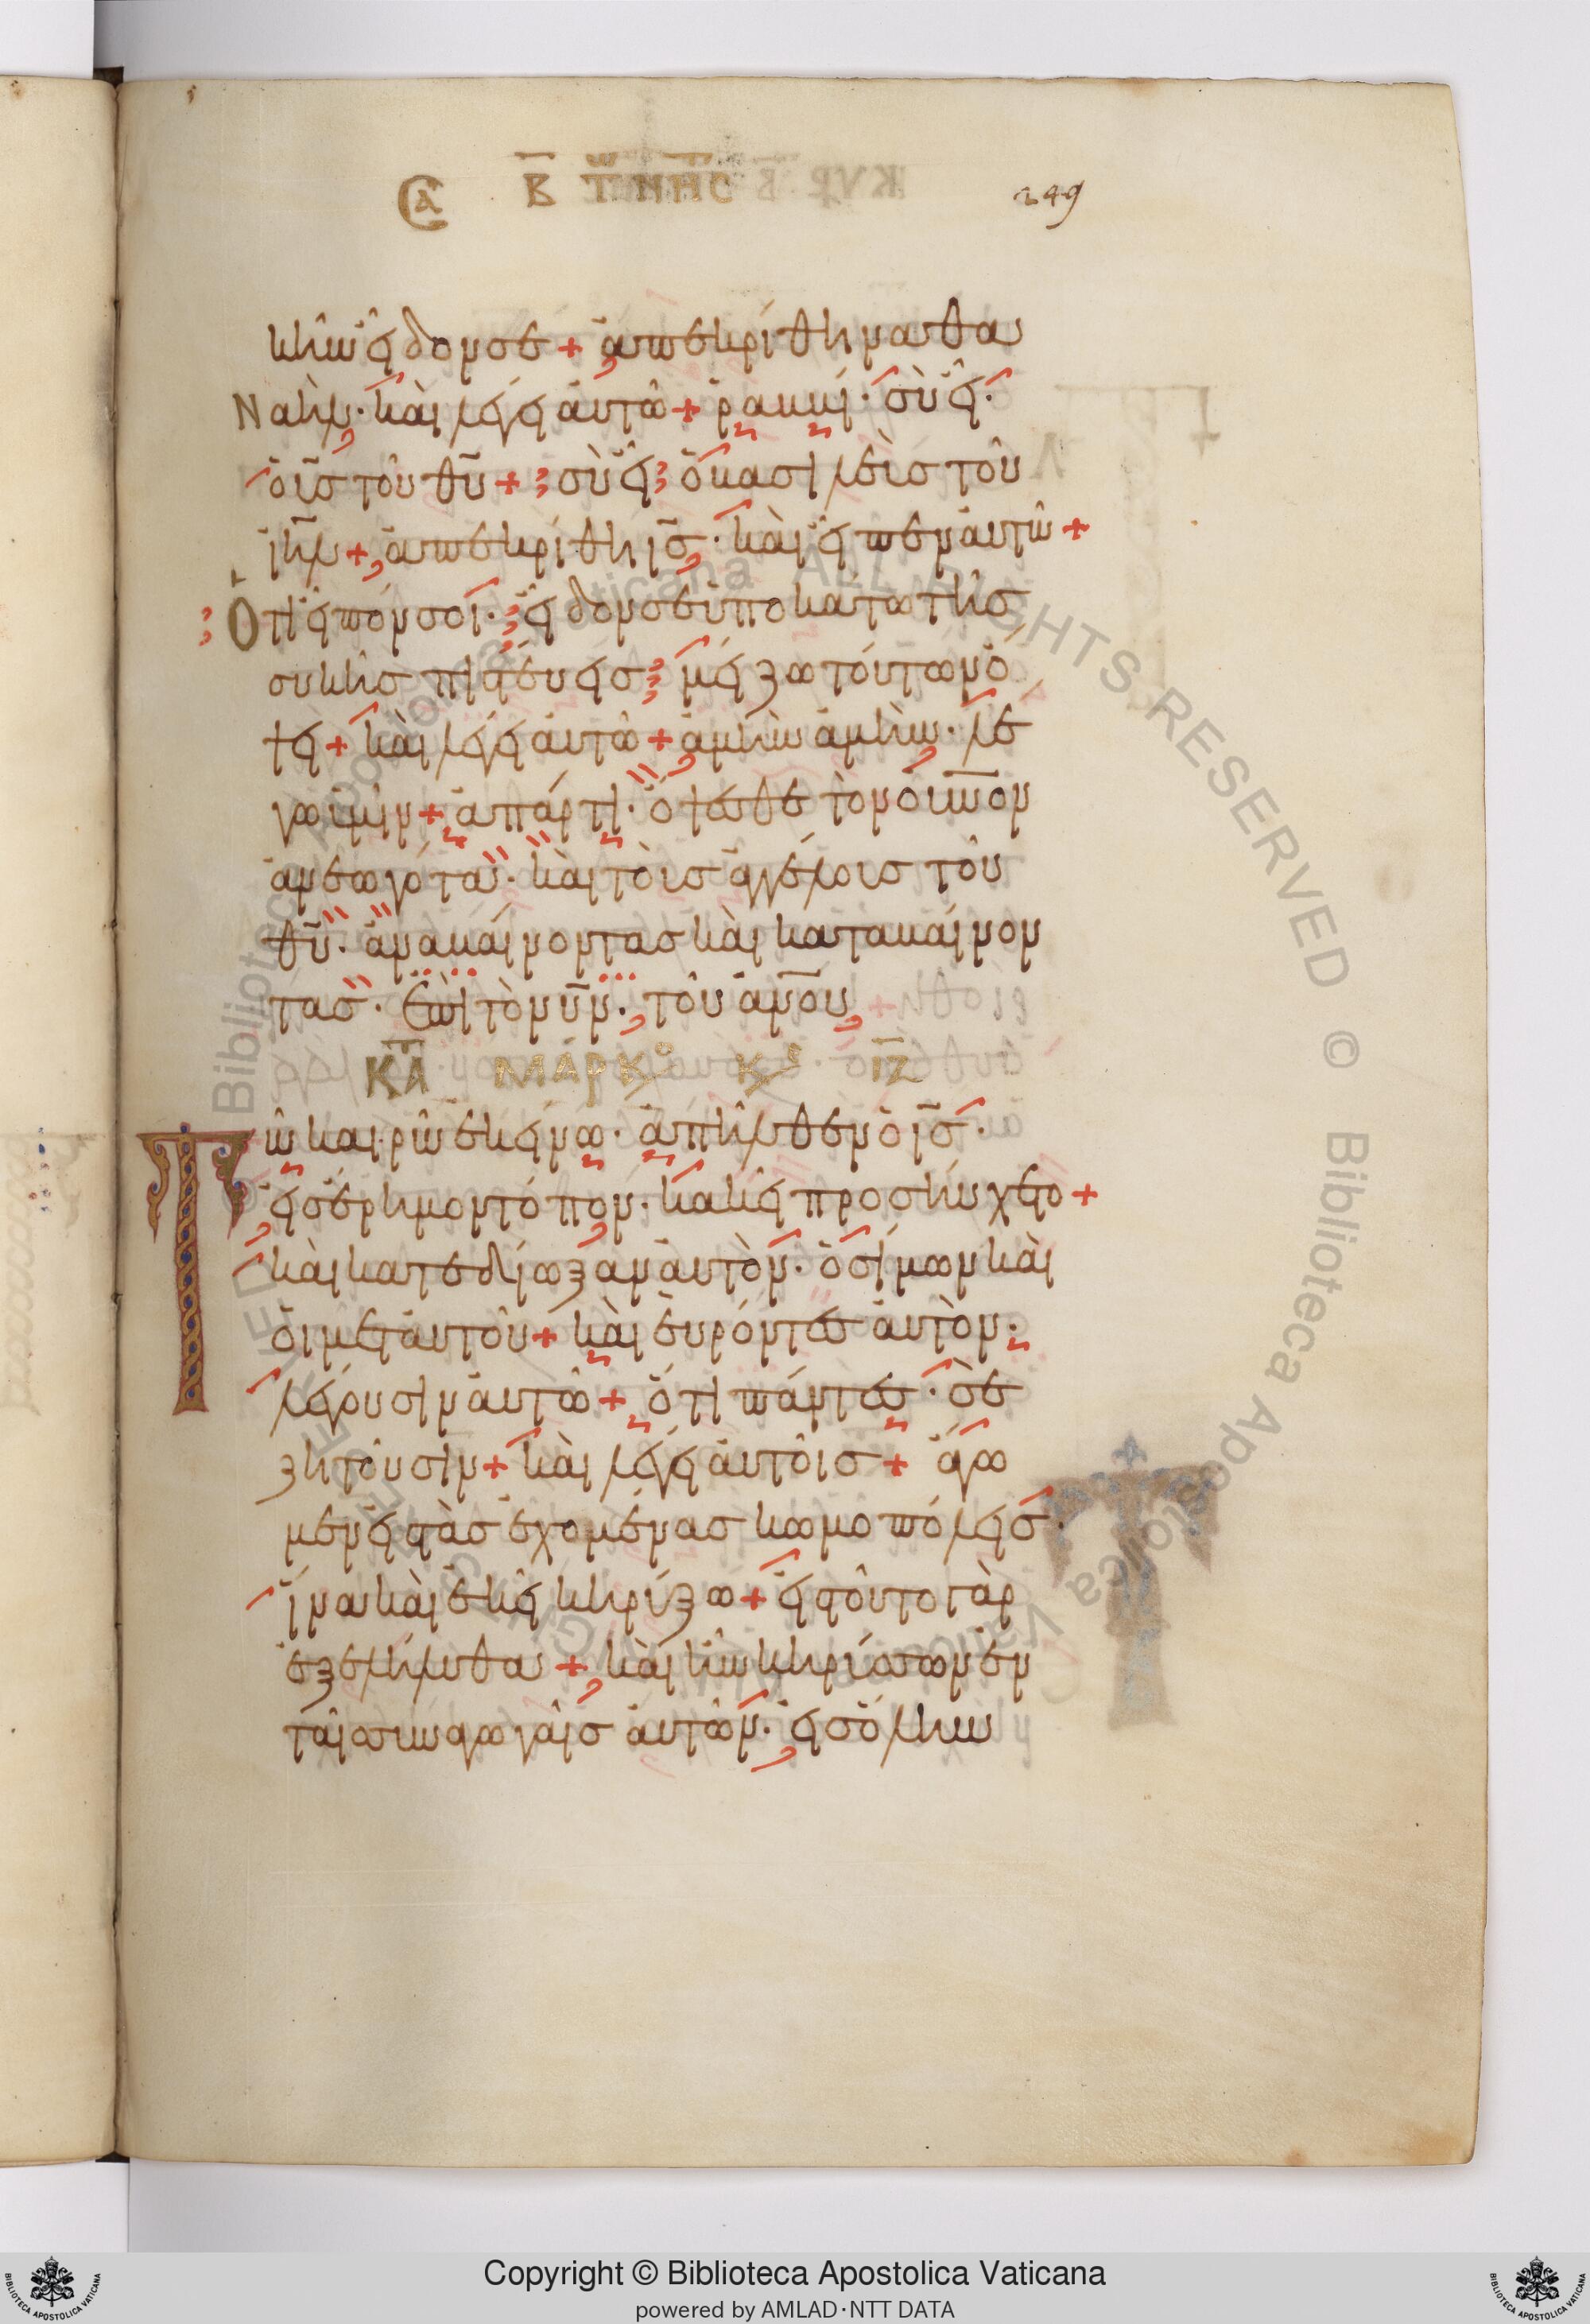 ϹΑ Β ΤΩ ΝΗϹ 249
κὴν εἶδόν σε + ἀπεκρίθη Ναθα
Ναήλ· καὶ λέγει αὐτῶ + ῥαββί· σὺ εἶ·
ὁ υἱσ τοῦ θυ + σὺ εἶ ὁ βασιλεὺσ τοῦ
ιηλ + ἀπεκρίθη ισ· καὶ εἶπεν αὐτῶ +
Ὅτι εἶπόν σοι· εἶδόν σε ὑποκάτω τῆσ
συκῆσ πιστεύεισ μείζω τούτων ὄ
ψει + καὶ λέγει αὐτῶ + ἀμὴν ἀμὴν· λέ
γω ὑμῖν + ἀπάρτι· ὄψεσθε τὸν οὐνον
ἀνεωγότα· καὶ τοὺσ ἀγγέλουσ τοῦ
θυ· ἀναβαίνοντασ καὶ καταβαίνον
τασ· ἐπὶ τὸν υν· τοῦ ανου
ΚΑΤΑ ΜΑΡΚΟ Κε ΙΖ
Τῶ καιρῶ ἐκείνω· ἀπῆλθεν ὁ ισ·
εἰσ ἔρημον τόπον· κακεῖ προσηύχετο +
καὶ κατεδίωξαν αὐτὸν· ὁ σίμων καὶ
οἱ μετ αὐτοῦ + καὶ εὑρόντεσ αὐτὸν·
λέγουσιν αὐτῶ + ὅτι πάντεσ· σὲ
ζητοῦσιν + καὶ λέγει αὐτοῖσ + ἄγω
μεν εἰσ τὰσ ἐχομένασ κωμοπόλεισ·
ἵνα καὶ ἐκεῖ κηρύξω + εἰσ τοῦτο γὰρ
ἐξελήλυθα + καὶ ἦν κηρύσσων ἐν
ταῖσ συναγωγαῖσ αὐτῶν· εἰσ ὅλην
Copyright © Biblioteca Apostolica Vaticana
powered by AMLAD·NTT DATA